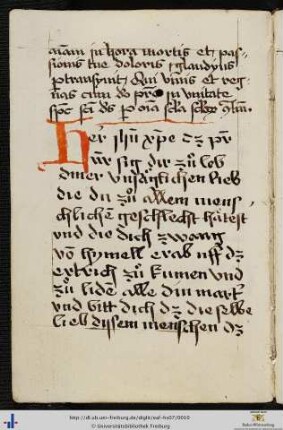 meam in hora mortis et pas-
sionis tue doloris gladius
ptransiuit Qui viuis et reg-
nas cum do pre in vnitate
sps sci ds p oia scla sclor
Her jhu xpe dz pr
vnr sig dir zu lob
diner vnsaglichen lieb
die du zu allem mens
chlichen geschlecht hatest
vnd die dich zwang
vo hymell erab vff dz
ertrich zu kumen vnd
zu lide alle din mart
vnd bitt dich dz die selbe
lieb dissem menschen dz
http://dl.ub.uni-freiburg.de/diglit/
© Universitätsbibliothek Freiburg